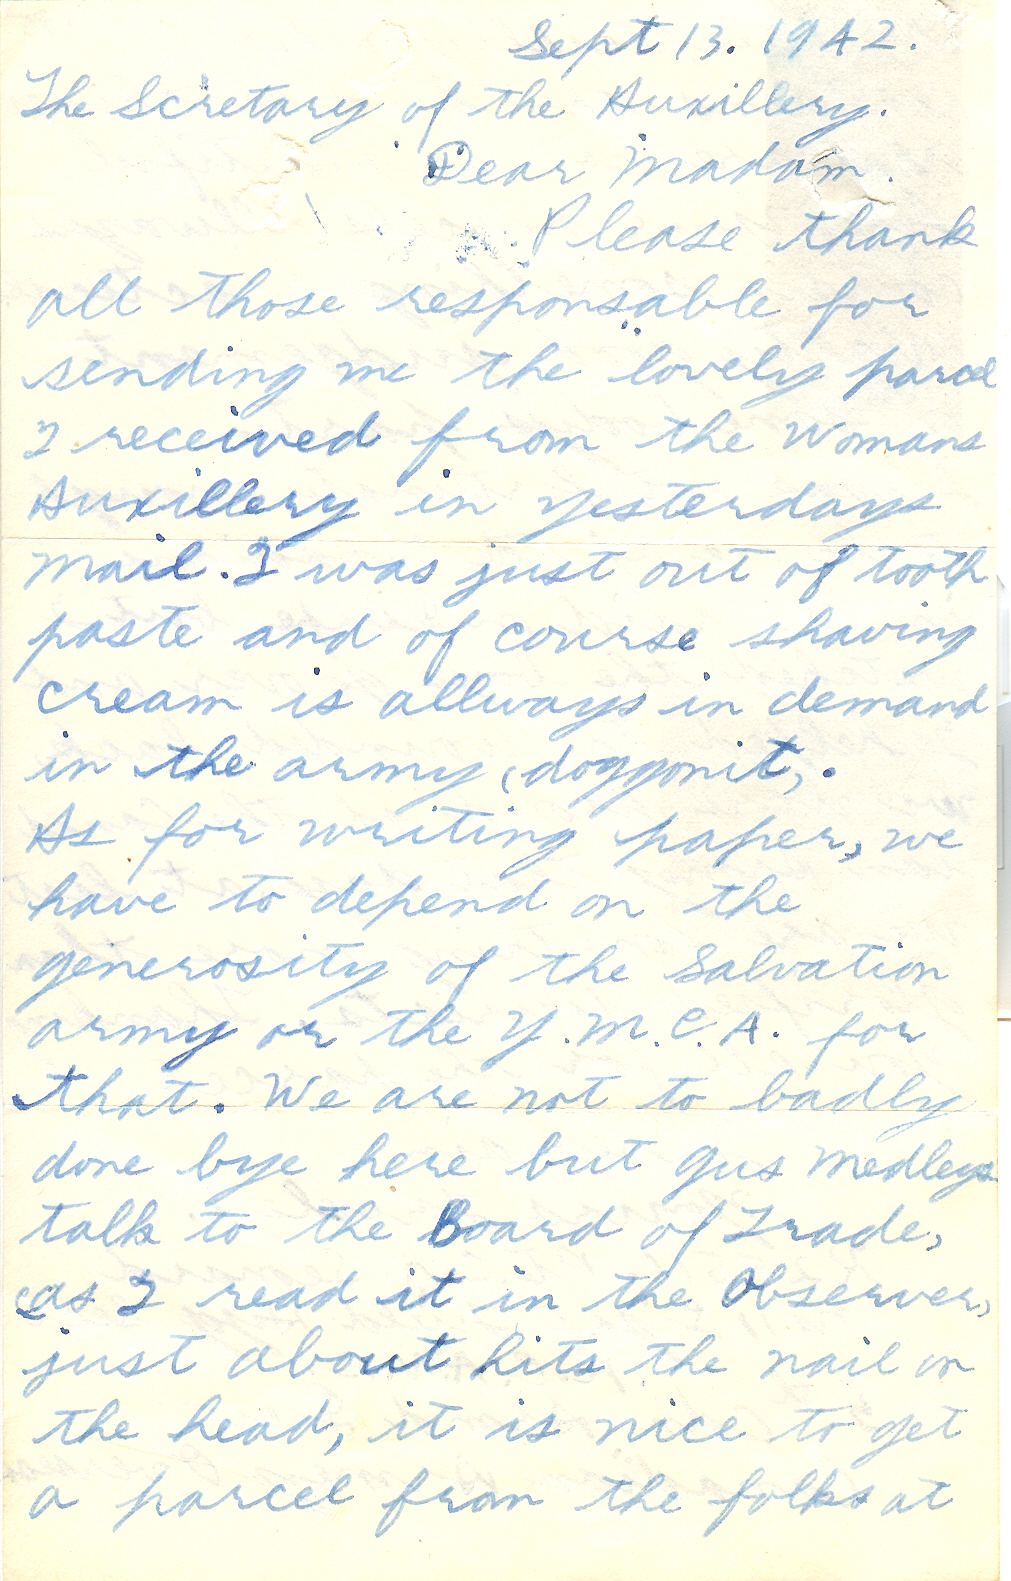 Sept 13. 1942.
The Scretary of the Auxillery.
Dear Madam.
Please thank
all those responsable for
sending me the lovely parcel
I received from the Womans
Auxillery in yesterdays
mail. I was just out of tooth
paste and of course shaving
cream is allways in demand
in the army (doggonit).
As for writing paper, we
have to depend on the
generosity of the Salvation
army or the Y.M.C.A. for
that. We are not to badly
done bye here but Gus Medleys
talk to the Board of Trade,
(as I read it in the Observer)
just about hits the nail on
the head, it is nice to get
a parcel from the folks at